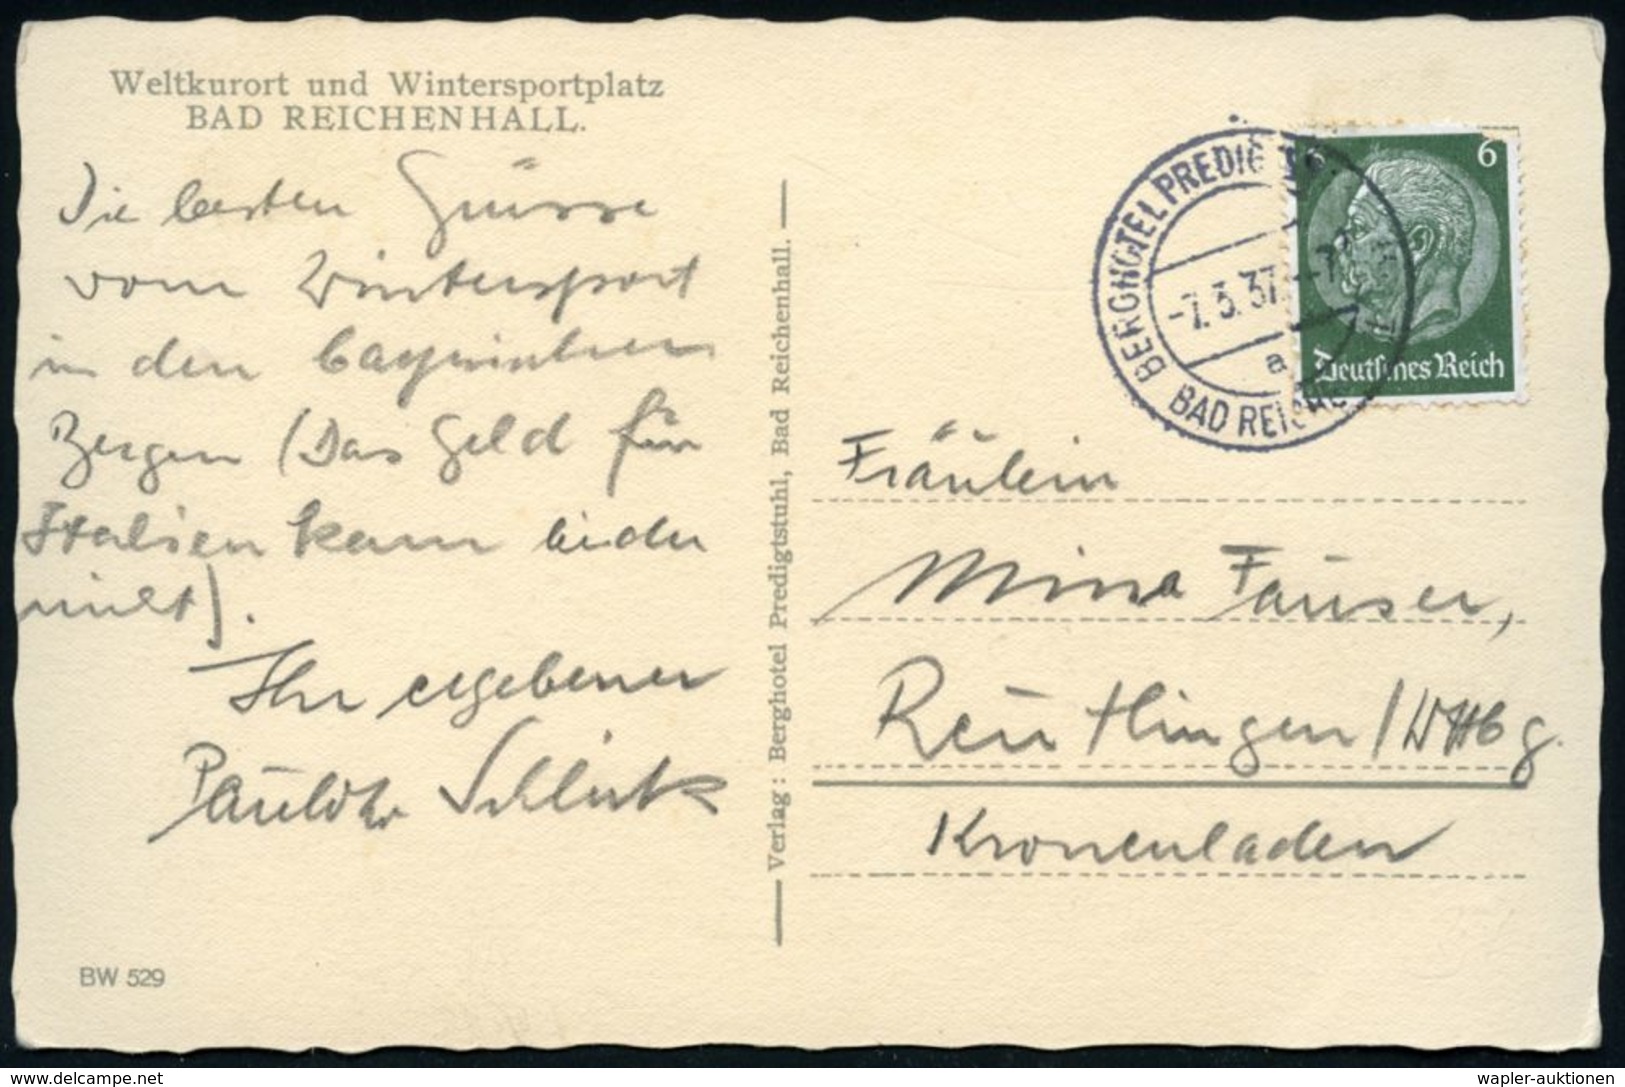 Weltkurort und Wintersportplatz
BAD REICHENHALL.
Die besten Grüsse
vom Wintersport
in den bayrischen
Bergen (Das Geld für
Italien kam leider
nicht).
Ihr ergebener
BW 529
Verlag: Berghotel Predigtstuhl, Bad Reichenhall.
BERGHOTEL PREDIGTST
-7.3.37
a
BAD REICHE
6 6
Deutsches Reich
Fräulein
Mina Fauser,
Reutlingen / Wttbg.
Kronenladen
www.delcampe.net
wapler-auktionen